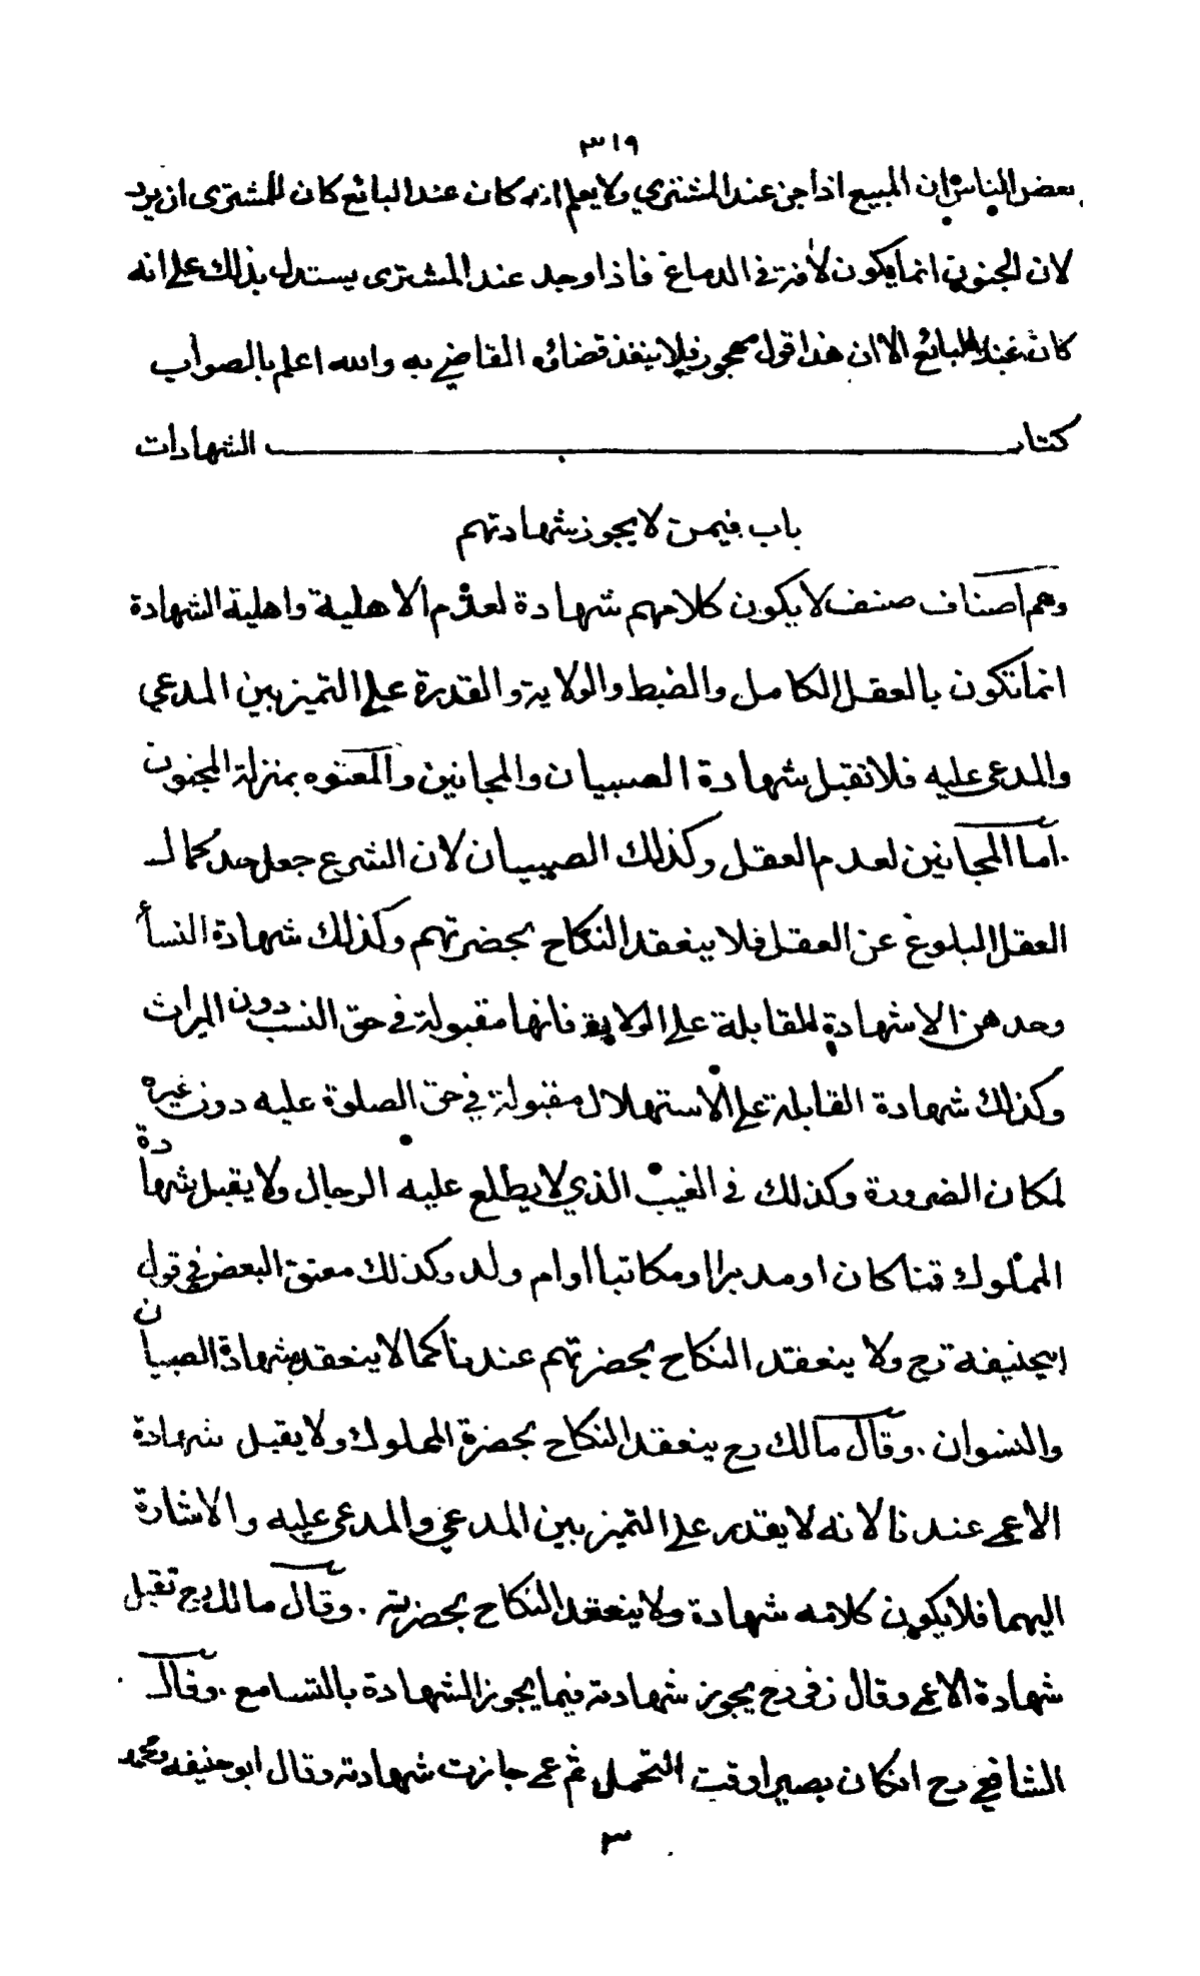 ٣١٩
بعض الناس ان المبيع اذا جن عند المشتري ولا يعلم انه كان عند البائع كان للمشترى ان يرد
لان الجنون انما يكون لافة في الدماغ فاذا وجد عند المشترى يستدل بذلك على انه
كان عند البائع الا ان هذا قول مهجور فلا ينفذ قضائه القاضي به والله اعلم بالصواب
كتاب الشهادات
باب فيمن لا يجوز شهادتهم
وهم اصناف صنف لا يكون كلامهم شهادة لعدم الاهلية واهلية الشهادة
انما تكون بالعقل الكامل والضبط والولاية والقدرة على التميز بين المدعي
والمدعى عليه فلا تقبل شهادة الصبيان والمجانين والمعتوه بمنزلة المجنون
اما المجانين لعدم العقل وكذلك الصبيان لان الشرع جعل حد كمال
العقل البلوغ عن العقل فلا ينعقد النكاح بحضرتهم وكذلك شهادة النساء
وحدهن الا شهادة القابلة على الولاية فانها مقبولة في حق النسب دون الميراث
وكذلك شهادة القابلة على الاستهلال مقبولة في حق الصلوة عليه دون غيره
لمكان الضرورة وكذلك في الغيب الذي لا يطلع عليه الرجال ولا يقبل شهادة
المملوك قنا كان او مدبرا او مكاتبا او ام ولد وكذلك معتق البعض في قول
ابيحنيفه رح ولا ينعقد النكاح بحضرتهم عندنا كما لا ينعقد بشهادة الصبيان
والنسوان . وقال مالك رح ينعقد النكاح بحضرة المملوك ولا يقبل شهادة
الاعمى عندنا لانه لا يقدر على التميز بين المدعي والمدعى عليه والاشارة
اليهما فلا يكون كلامه شهادة ولا ينعقد النكاح بحضرته . وقال مالك رح تقبل
شهادة الاعمى وقال زفر رح يجوز شهادته فيما يجوز الشهادة بالتسامع . وقال
الشافعي رح ان كان بصيرا وقت التحمل ثم عمى جازت شهادته وقال ابو حنيفه ومحمد
٣